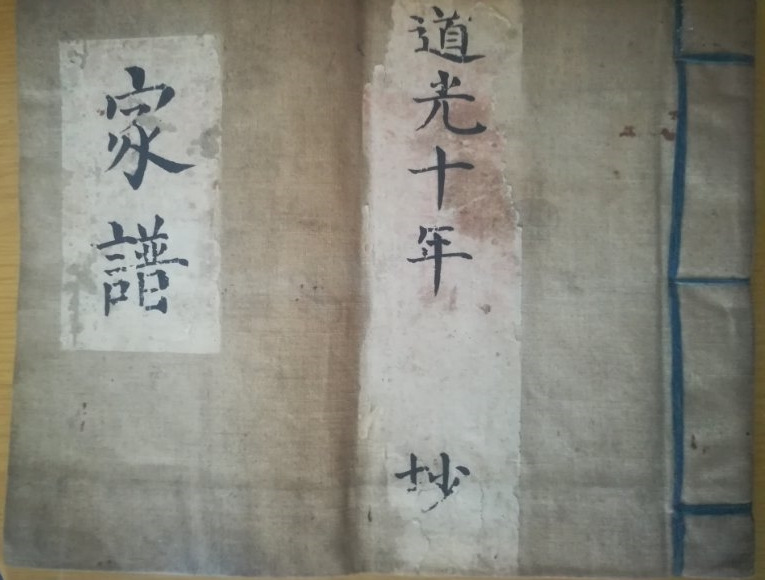 道光十年 抄
家譜